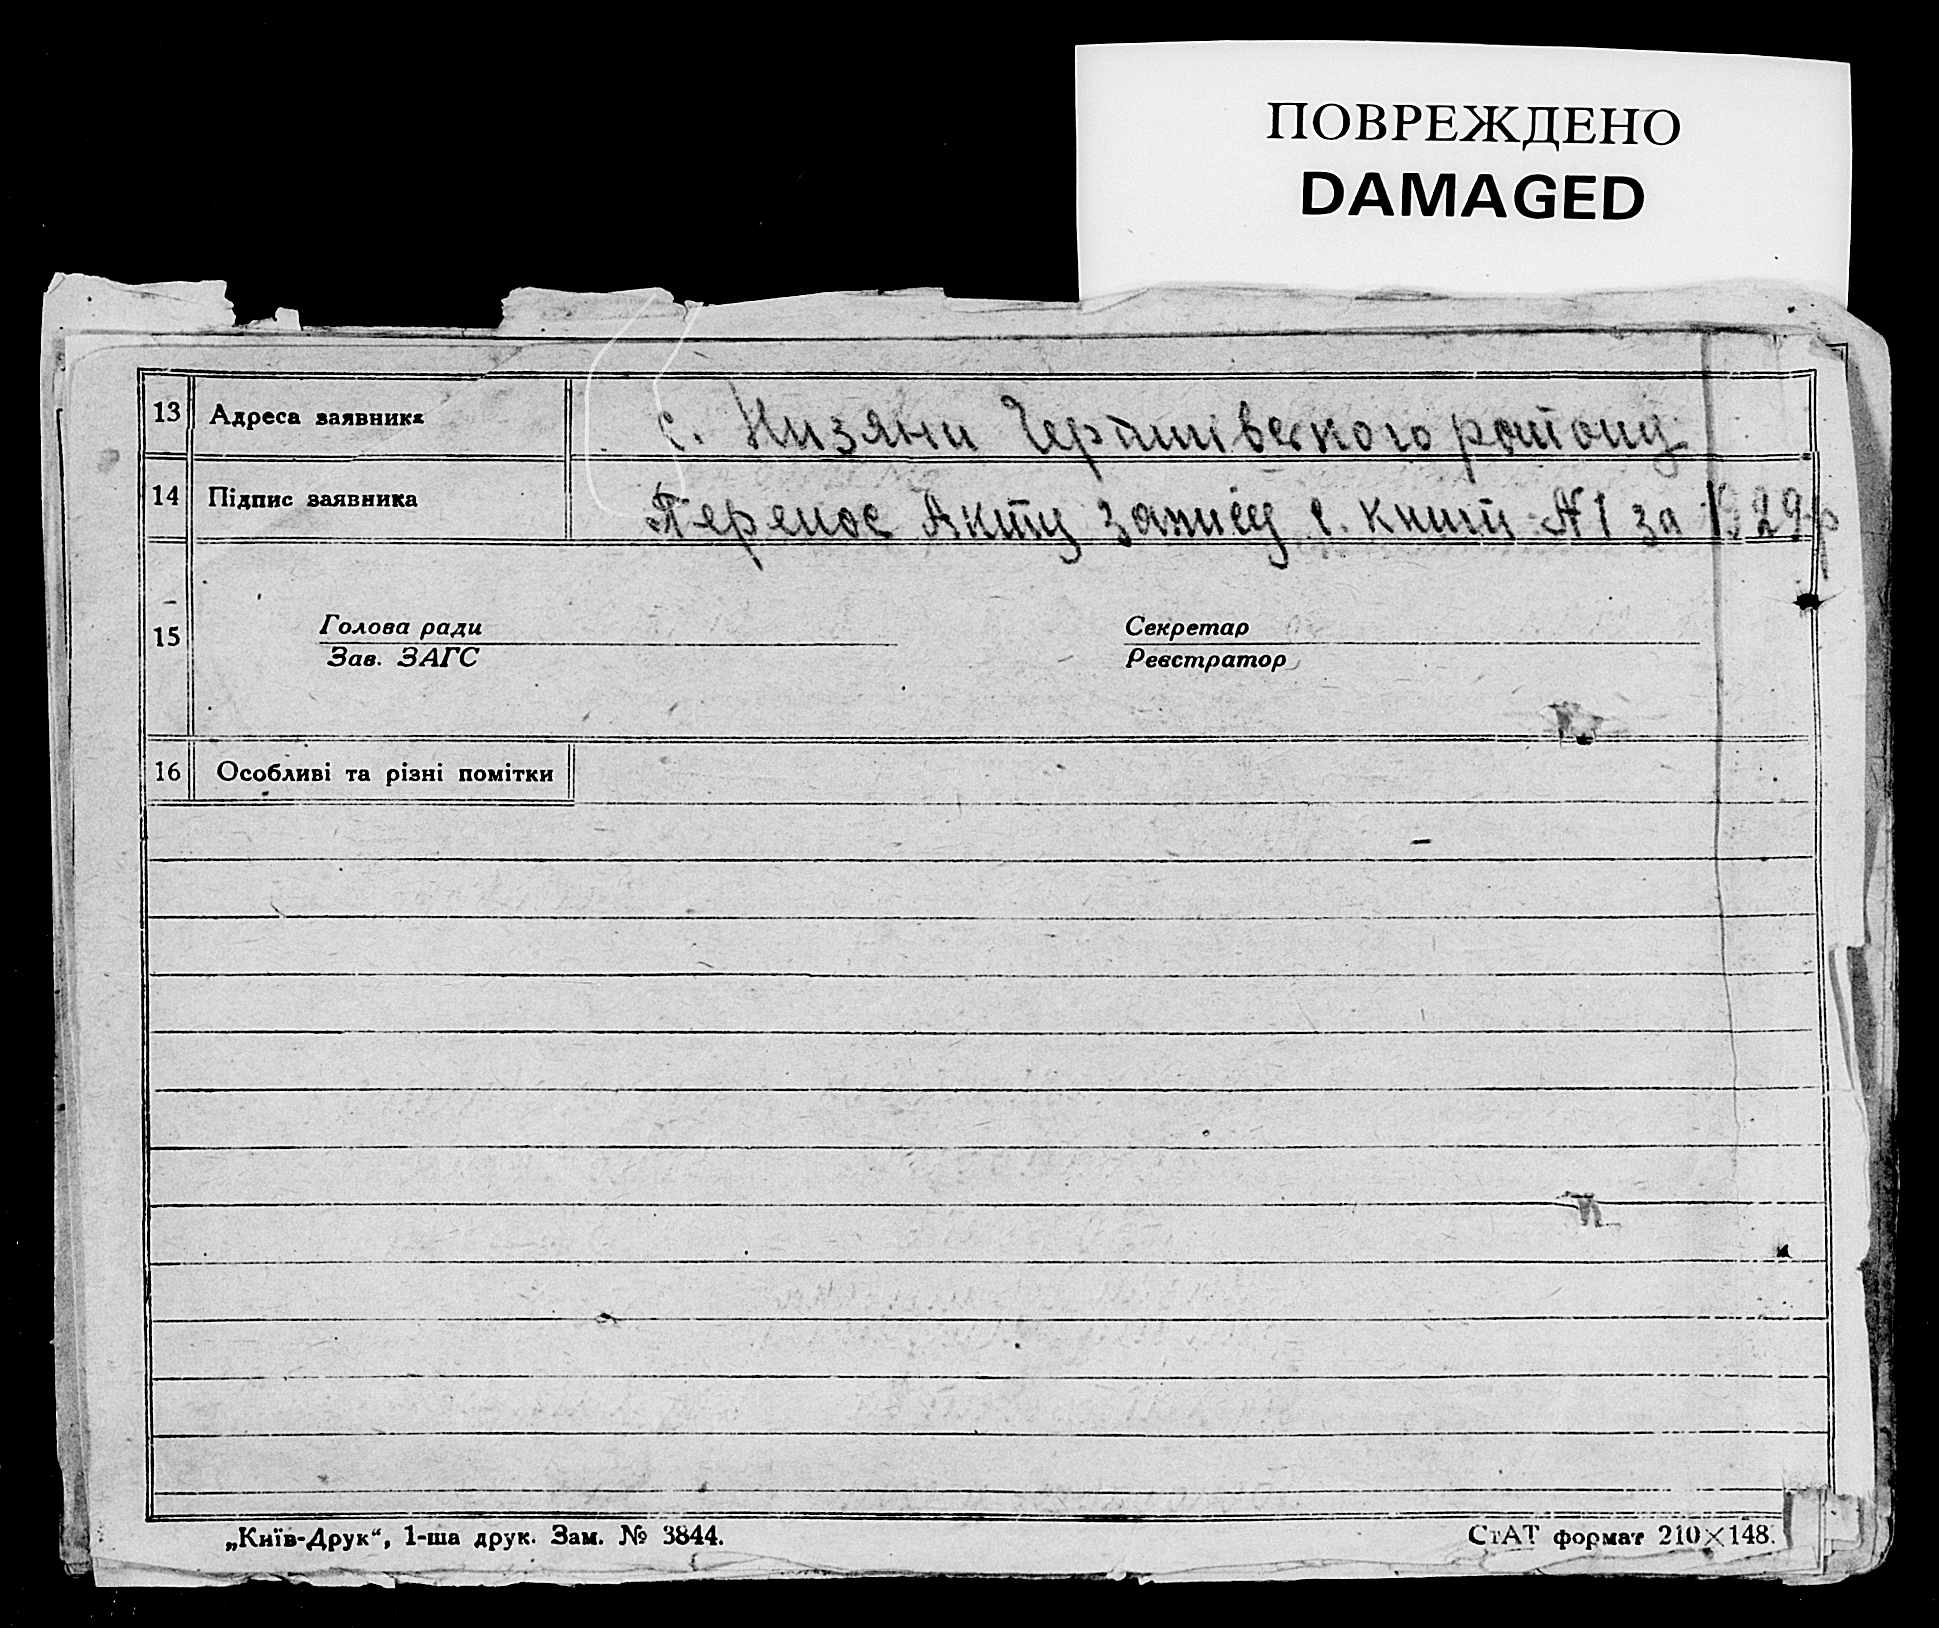 ПОВРЕЖДЕНО
DAMAGED
13 Адреса заявника с. Низяни району
14 Підпис заявника Перенос Акту запису с. книги №1 за 1929 р
15 Голова ради Секретар
Зав. ЗАГС Реєстратор
16 Особливі та різні помітки
„Київ-Друк“, 1-ша друк. Зам. № 3844. СтАТ формат 210×148.